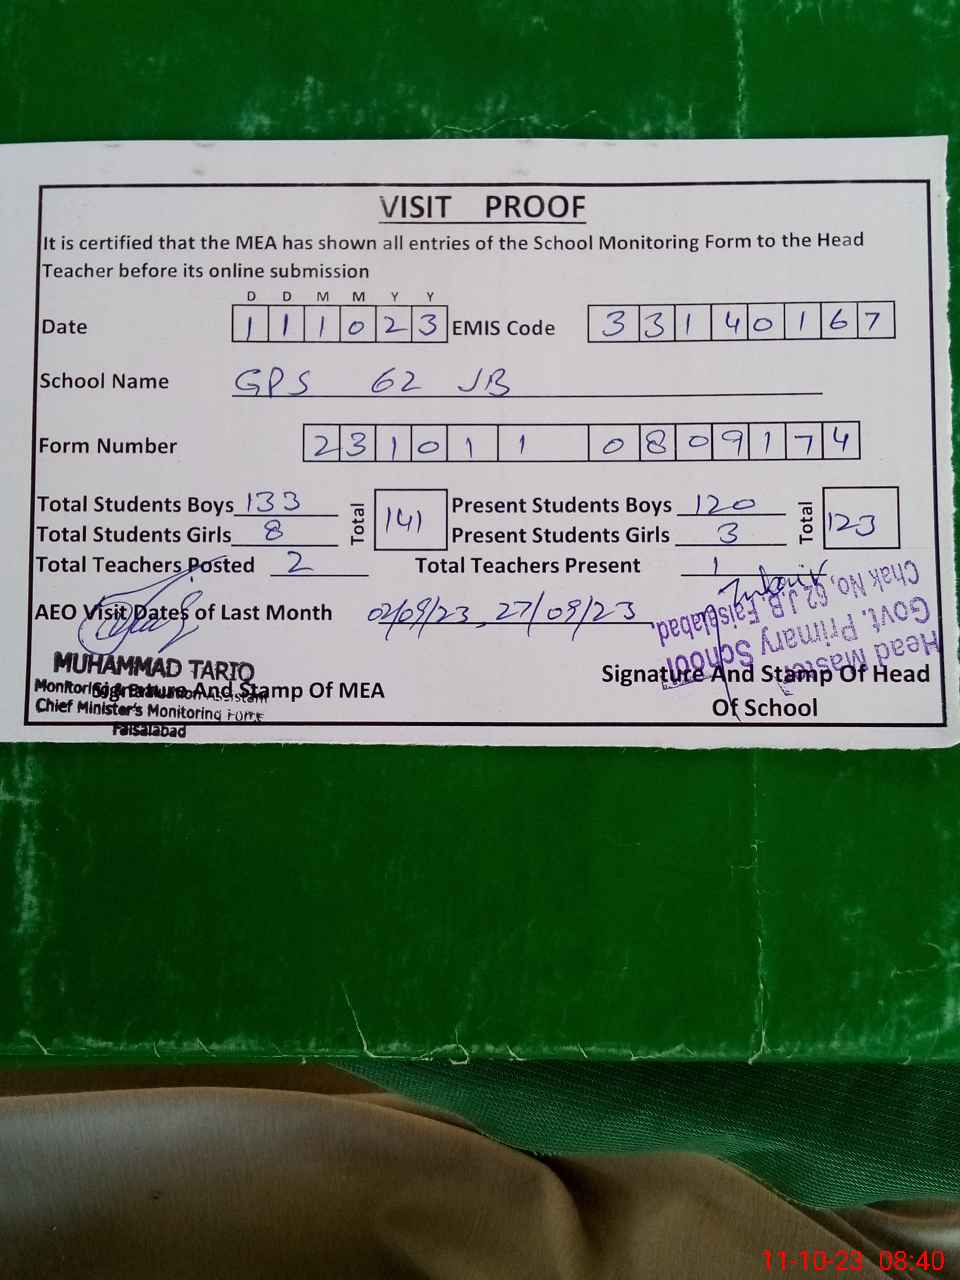 VISIT PROOF
It is certified that the MEA has shown all entries of the School Monitoring Form to the Head
Teacher before its online submission
D D M M Y Y
Date 1 1 1 0 2 3 EMIS Code 3 3 1 4 0 1 6 7
School Name GPS 62 JB
Form Number 2 3 1 0 1 1 0 8 0 9 1 7 4
Total Students Boys 133 Total 141 Present Students Boys 120 Total 123
Total Students Girls 8 Present Students Girls 3
Total Teachers Posted 2 Total Teachers Present 1
AEO Visit Dates of Last Month 02/09/23, 27/09/23
Head Master
Govt. Primary School
Chak No, 62 J.B. Faisalabad
MUHAMMAD TARIQ
Monitoring & Evaluation Assistant
Signature And Stamp Of MEA
Chief Minister's Monitoring Force
Faisalabad
Signature And Stamp Of Head
Of School
11-10-23 08:40